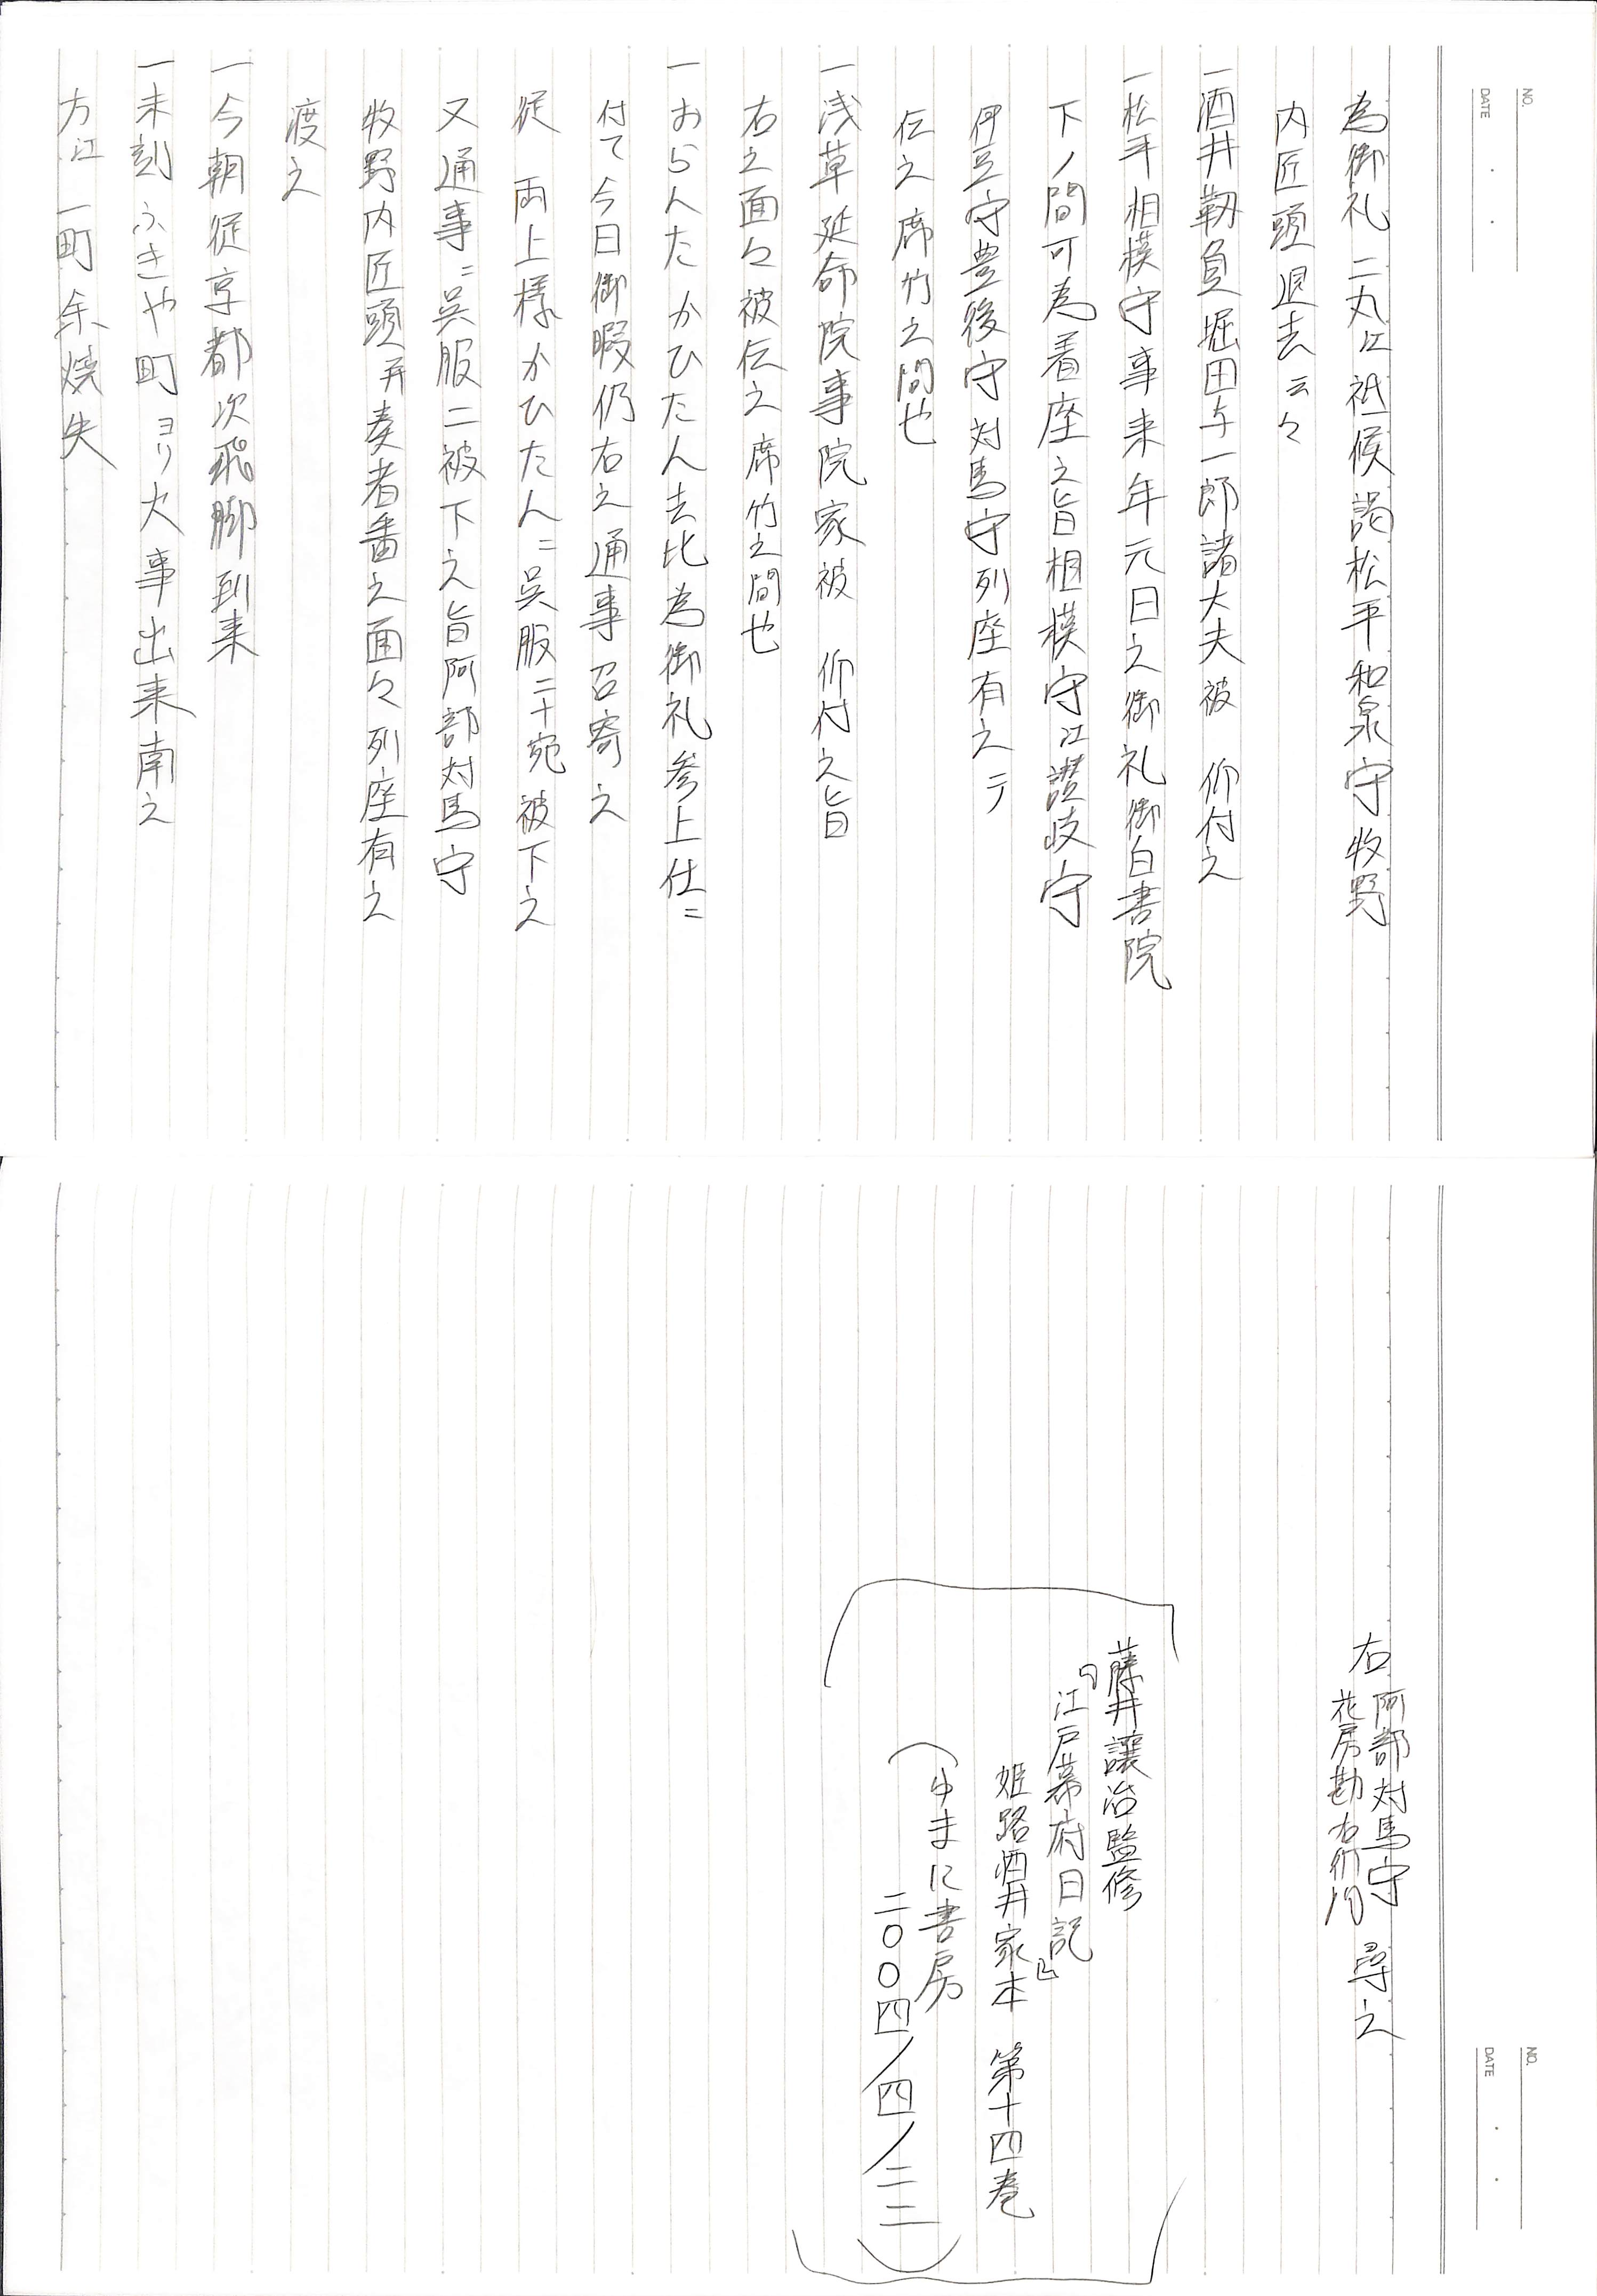 NO.
DATE
為御礼 二丸江祗候謁松平和泉守牧野
内匠頭退去云々
一酒井靱負堀田与一郎諸大夫被 仰付之
一松平相模守事来年元日之御礼御白書院
下ノ間可為着座之旨相模守江讃岐守
伊豆守豊後守対馬守列座有之テ
伝之席竹之間也
一浅草延命院事院家被 仰付之旨
右之面々被伝之席竹之間也
一おらんたかひたん去比為御礼参上仕ニ
付て今日御暇仍右之通事召寄之
従 両上様かひたんニ呉服二十宛被下之
又通事ニ呉服二被下之旨阿部対馬守
牧野内匠頭并奏者番之面々列座有之
渡之
一今朝従京都次飛脚到来
一未刻ふきや町ヨリ火事出来南之
方江一町余焼失
NO.
DATE
右 阿部対馬守
花房勘右衛門 尋之
藤井讓治監修
『江戸幕府日記』
姫路酒井家本 第十四巻
(ゆまに書房
二〇〇四/四/二二)